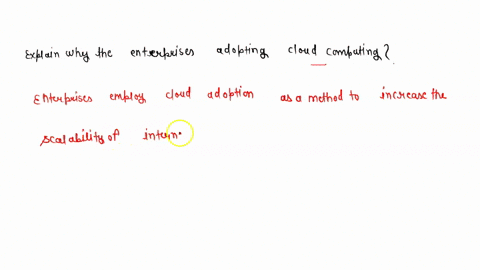 Explain why the enterprises adopting cloud computing?
Enterprises employ cloud adoption as a method to increase the
scalability of intern